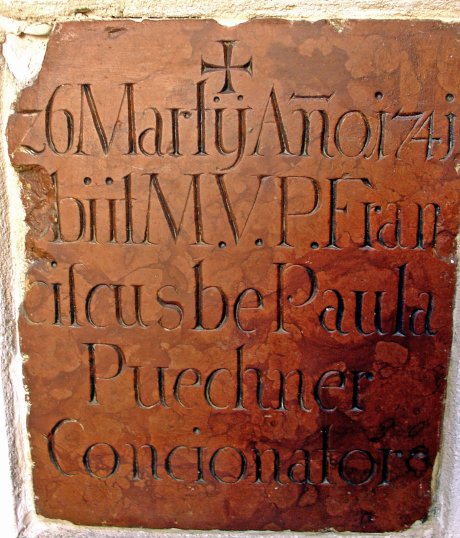 26 Martÿ Año. 174j
obiit M. V. P. Fran
ciſcus be Paula
Puechner
Concionator